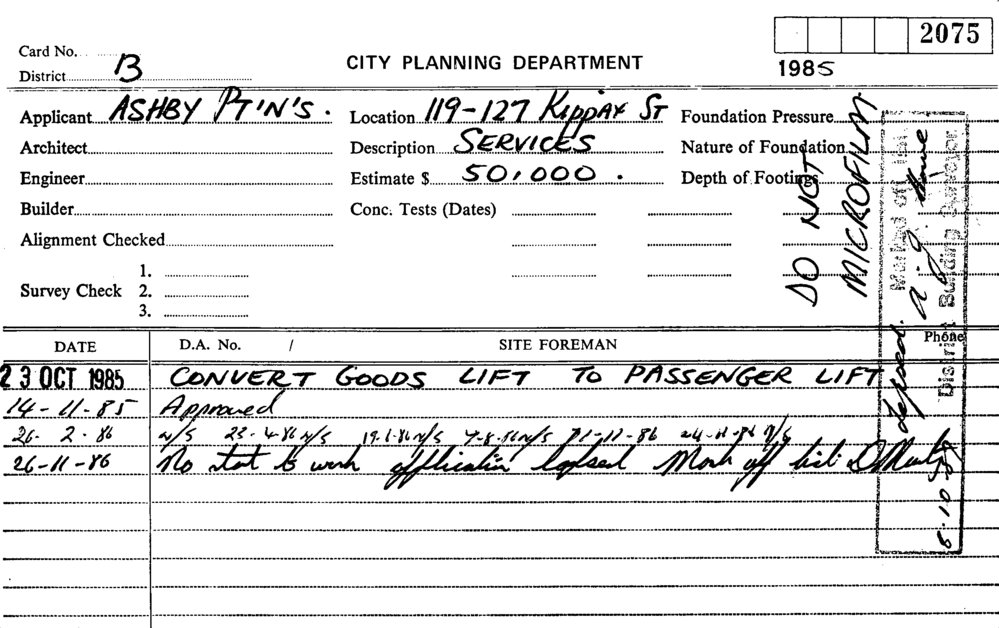 2075
Card No.
District B
CITY PLANNING DEPARTMENT
1985
Applicant ASHBY PT'N'S.
Location 119-127 KIPPAX ST
Foundation Pressure
Architect
Description SERVICES
Nature of Foundation
Engineer
Estimate $ 50,000.
Depth of Footings
Builder
Conc. Tests (Dates)
Alignment Checked
Survey Check 1.
2.
3.
DO NOT
MICROFILM
Marked off list
lapsed
District Building Surveyor
DATE
D.A. No. /
SITE FOREMAN
Phone
23 OCT 1985 CONVERT GOODS LIFT TO PASSENGER LIFT
14-11-85 Approved
26-2-86 N/S 23-4-86 N/S N/S N/S
26-11-86 No start to work application lapsed Mark off list